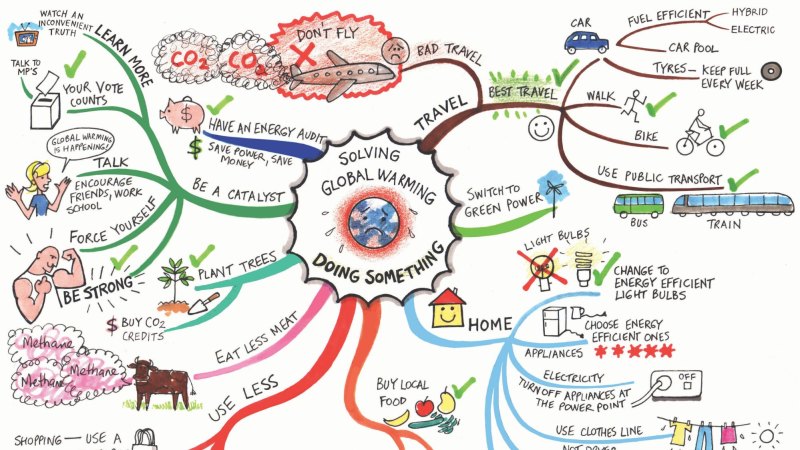 WATCH AN
INCONVENIENT
TRUTH
LEARN MORE
TALK TO
MP'S
YOUR VOTE
COUNTS
GLOBAL WARMING
IS HAPPENING!
TALK
ENCOURAGE
FRIENDS, WORK
SCHOOL
FORCE YOURSELF
BE STRONG
BE A CATALYST
CO2
CO2
DON'T FLY
BAD TRAVEL
TRAVEL
BEST TRAVEL
CAR
FUEL EFFICIENT
HYBRID
ELECTRIC
CAR POOL
TYRES - KEEP FULL
EVERY WEEK
WALK
BIKE
USE PUBLIC TRANSPORT
BUS
TRAIN
$
HAVE AN ENERGY AUDIT
$ SAVE POWER, SAVE
MONEY
SOLVING
GLOBAL WARMING
DOING SOMETHING
SWITCH TO
GREEN POWER
PLANT TREES
$ BUY CO2
CREDITS
EAT LESS MEAT
Methane
Methane
Methane
USE LESS
SHOPPING — USE A
BUY LOCAL
FOOD
HOME
LIGHT BULBS
CHANGE TO
ENERGY EFFICIENT
LIGHT BULBS
CHOOSE ENERGY
EFFICIENT ONES
APPLIANCES
ELECTRICITY
TURN OFF APPLIANCES AT
THE POWER POINT
OFF
USE CLOTHES LINE
NOT DRYER